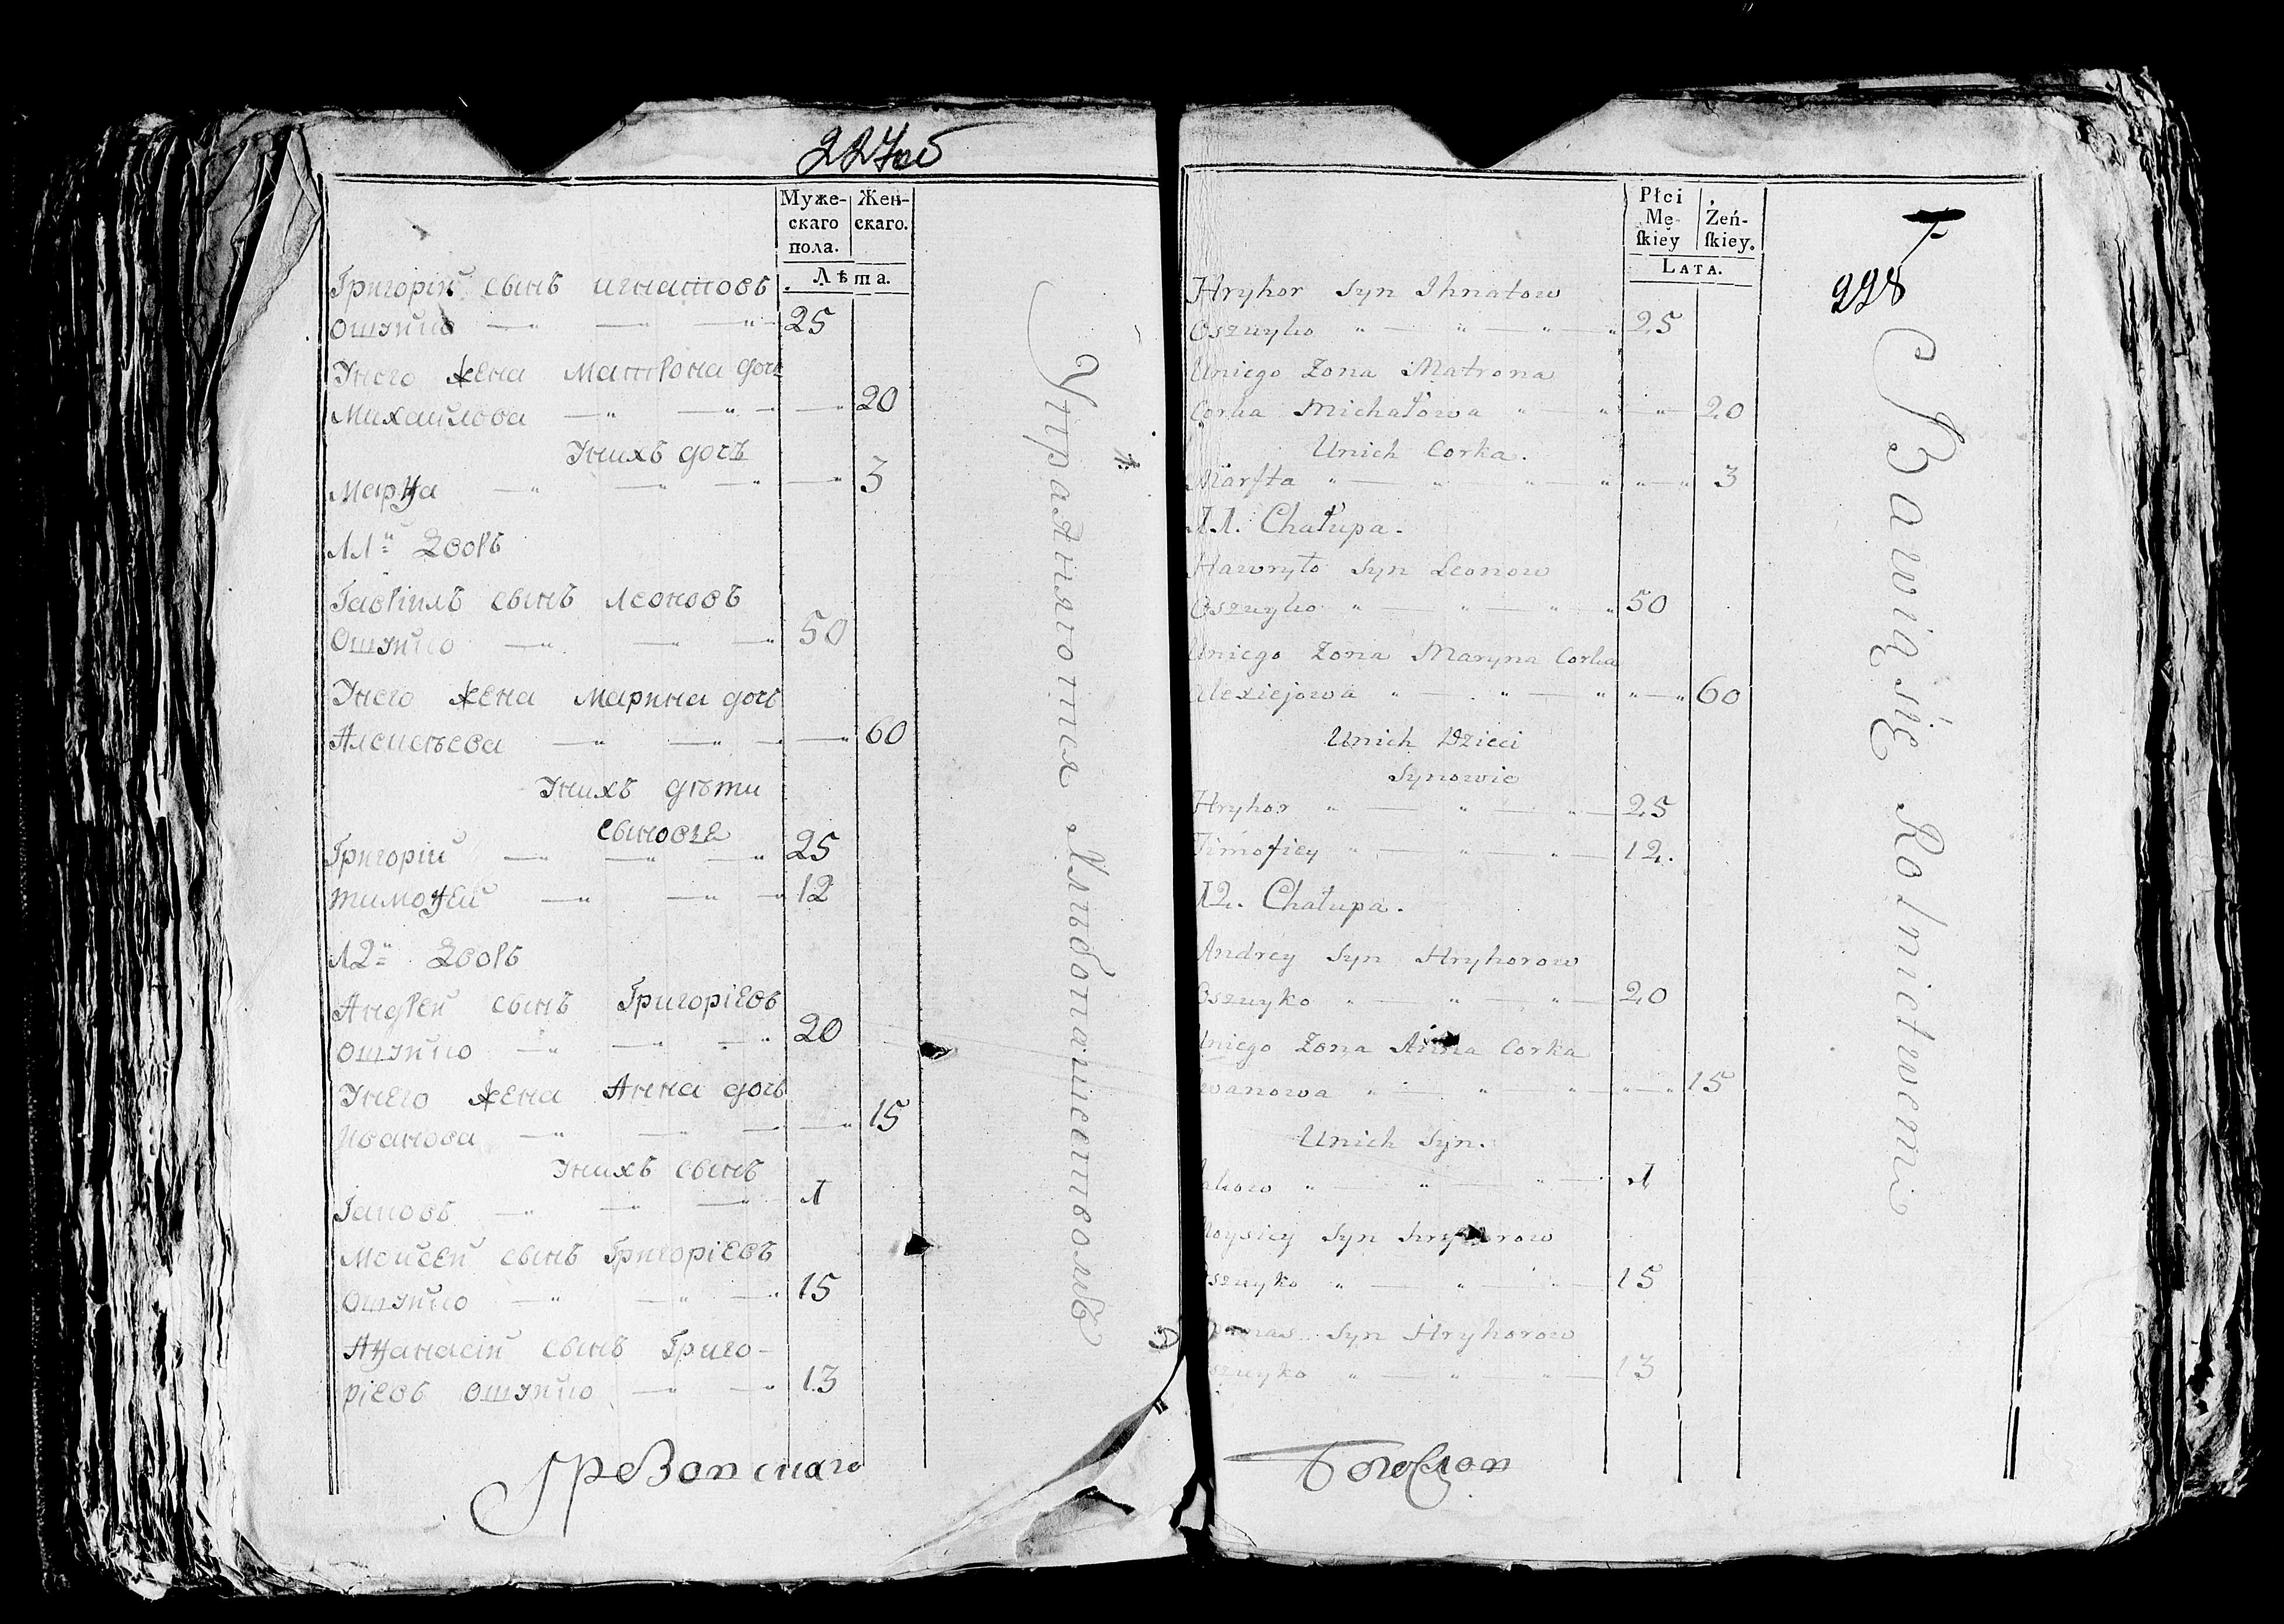 227об
Муже-
скаго
пола.
Жен-
скаго.
Лѣта.
Григорій сынъ игнатовъ
Ошуйко 25
Унего жена Матрона дочь
Михайлова 20
Унихъ дочь
Марѳа 3
11й Дворъ
Гавріилъ сынъ Леоновъ
Ошуйко 50
Унего жена Марина дочь
Алексѣева 60
Унихъ дѣти
сыновье
Григорій 25
тимоѳей 12
12й Дворъ
Андрей сынъ Григоріевъ
Ошуйко 20
Унего жена Анна дочь
Иванова 15
Унихъ сынъ
Іаковъ 1
Моисей сынъ Григоріевъ
Ошуйко 15
Аѳанасій сынъ Григо-
ріевъ Ошуйко 13
Упражняются Хлѣбопашествомъ
Płci
Mę-
ſkiey
Żeń-
ſkiey.
Lata.
7
228
Hryhor Syn Ihnatow
Oszuyko 25
Uniego Żona Matrona
Corka Michałowa 20
Unich Corka.
Marfta 3
11. Chałupa.
Hawryło Syn Leonow
Oszuyko 50
Uniego Żona Maryna Corka
Alexiejowa 60
Unich Dzieci
Synowie
Hryhor 25
Timofiey 12.
12. Chałupa.
Andrey Syn Hryhorow
Oszuyko 20
Uniego Żona Anna Corka
wanowa 15
Unich Syn.
akow 1
oysiey Syn Hryhorow
szuyko 15
Syn Hryhorow
szuyko 13
Bawią się Rolnictwem